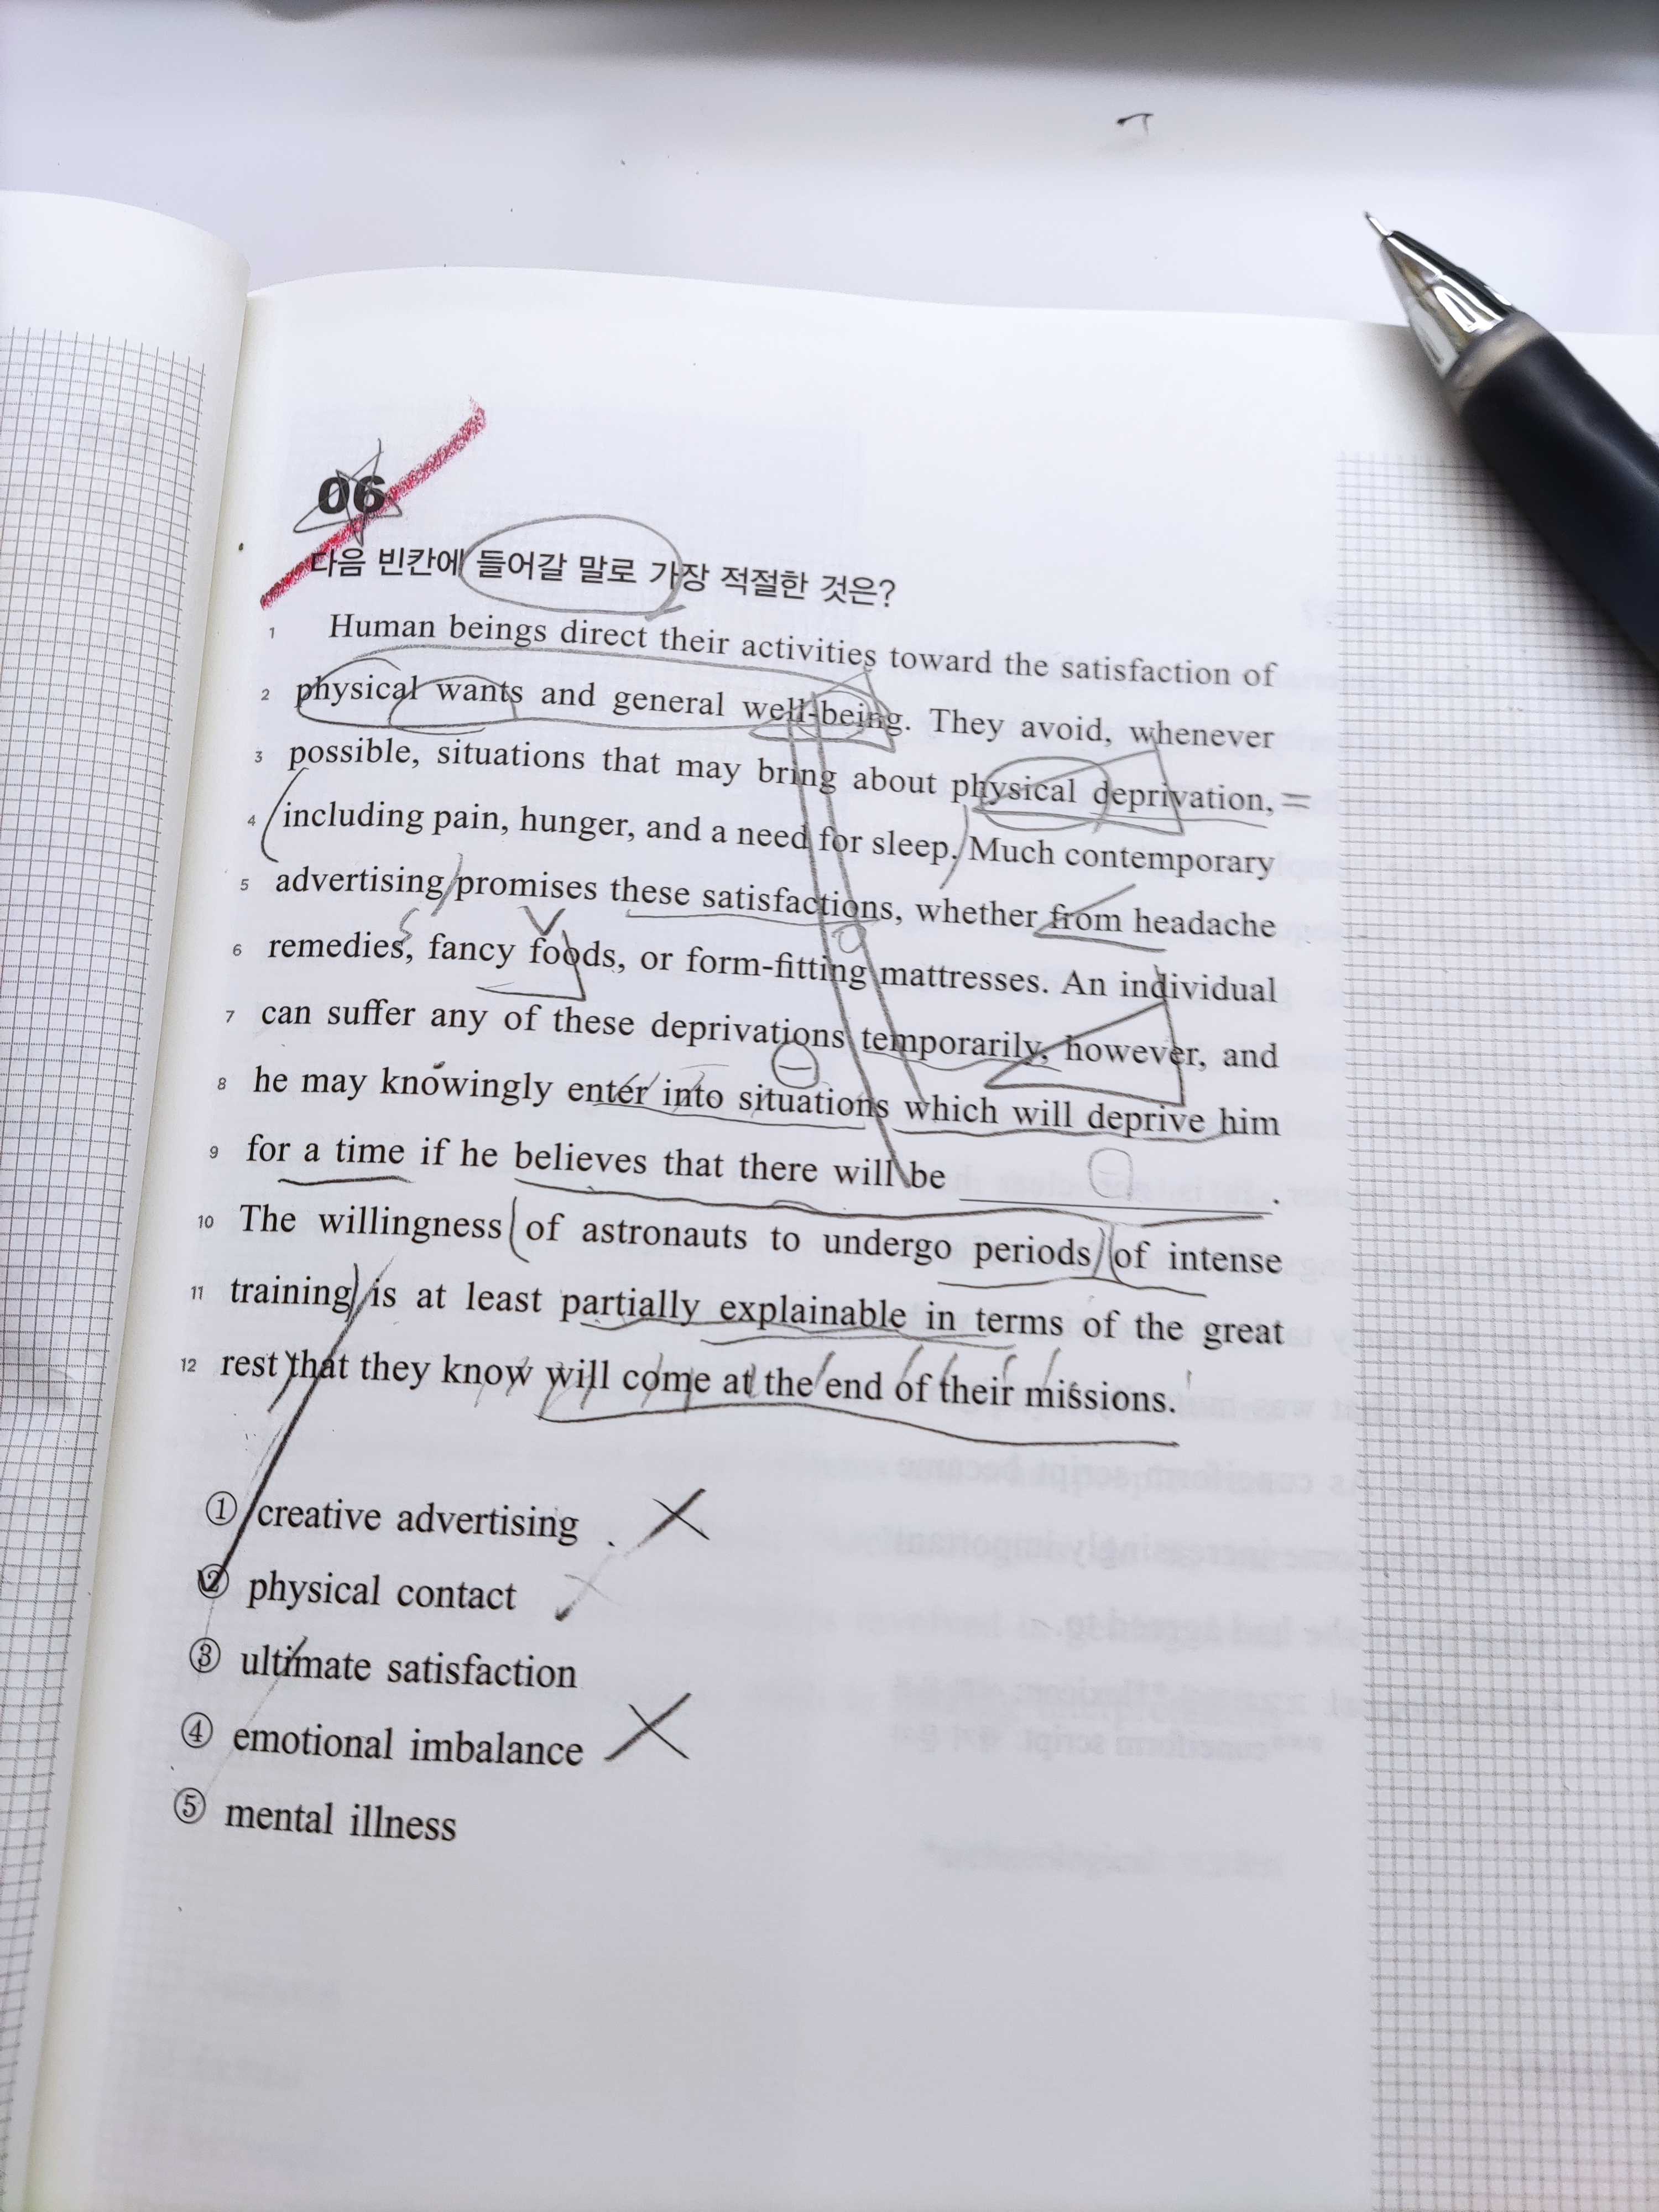 06
다음 빈칸에 들어갈 말로 가장 적절한 것은?
1 Human beings direct their activities toward the satisfaction of
2 physical wants and general well-being. They avoid, whenever
3 possible, situations that may bring about physical deprivation, =
4 including pain, hunger, and a need for sleep. Much contemporary
5 advertising promises these satisfactions, whether from headache
6 remedies, fancy foods, or form-fitting mattresses. An individual
7 can suffer any of these deprivations temporarily, however, and
8 he may knowingly enter into situations which will deprive him
9 for a time if he believes that there will be ____________.
10 The willingness of astronauts to undergo periods of intense
11 training is at least partially explainable in terms of the great
12 rest that they know will come at the end of their missions.
① creative advertising
② physical contact
③ ultimate satisfaction
④ emotional imbalance
⑤ mental illness